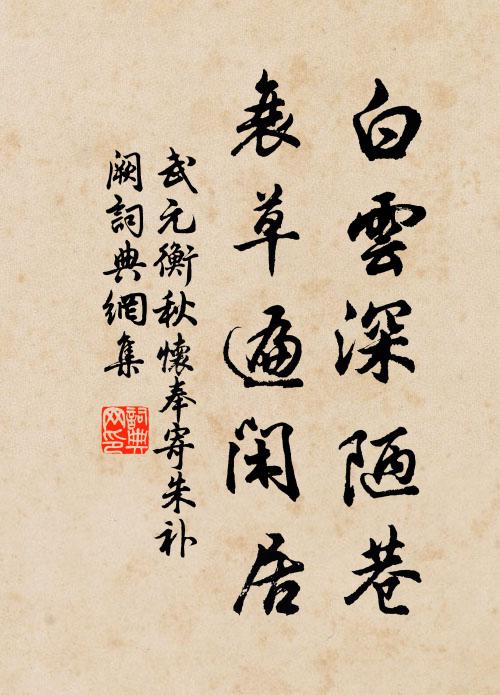 白雲深陋巷
衰草遍閑居
武元衡秋懷奉寄朱补
阙詞典網集
詞典
网印